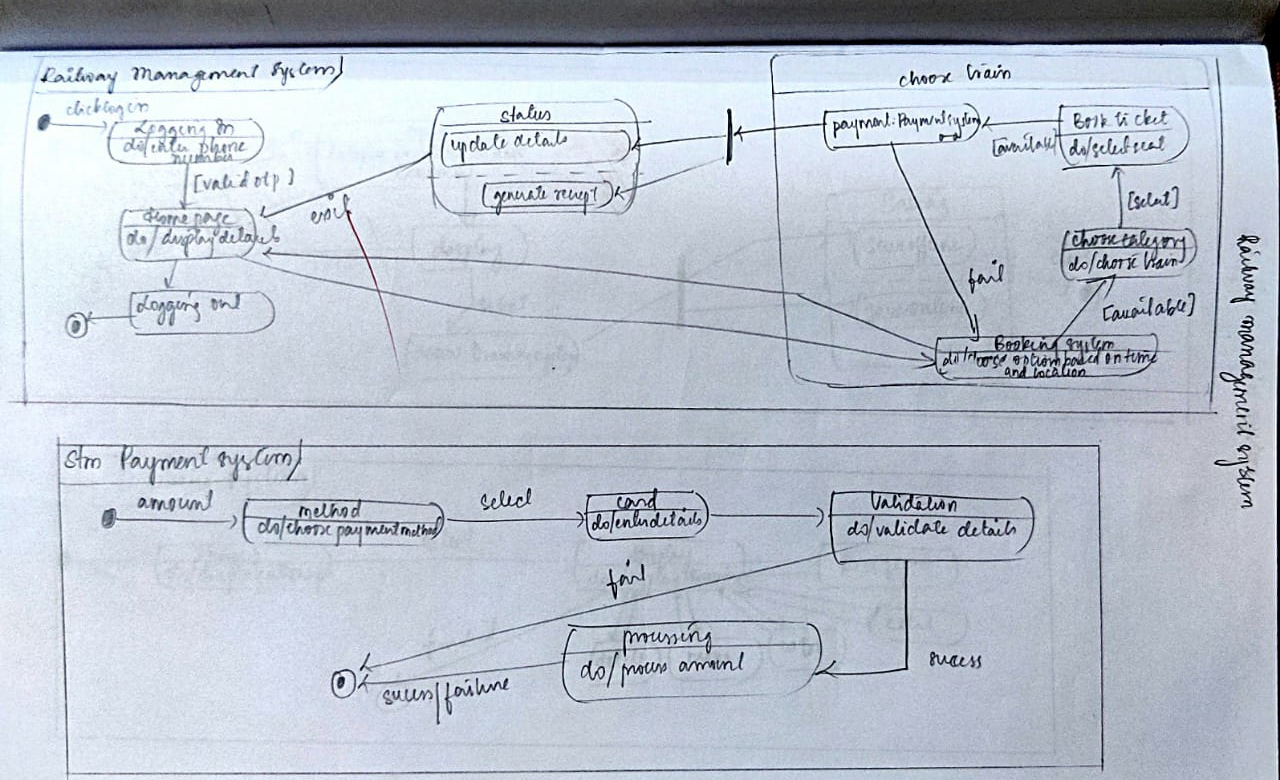 Railway Management System
choose train
click login
Logging In
do/enter phone
number
[valid otp]
Home page
do/display details
Logging out
status
update details
generate receipt
exit
payment: Payment system
[available]
Book ticket
do/select seat
[select]
choose category
do/choose train
[available]
fail
Booking system
do/choose option based on time
and location
Railway management system
Stm Payment system
amount
method
do/choose payment method
select
card
do/enter details
Validation
do/validate details
fail
sucess
processing
do/process amount
sucess/failure